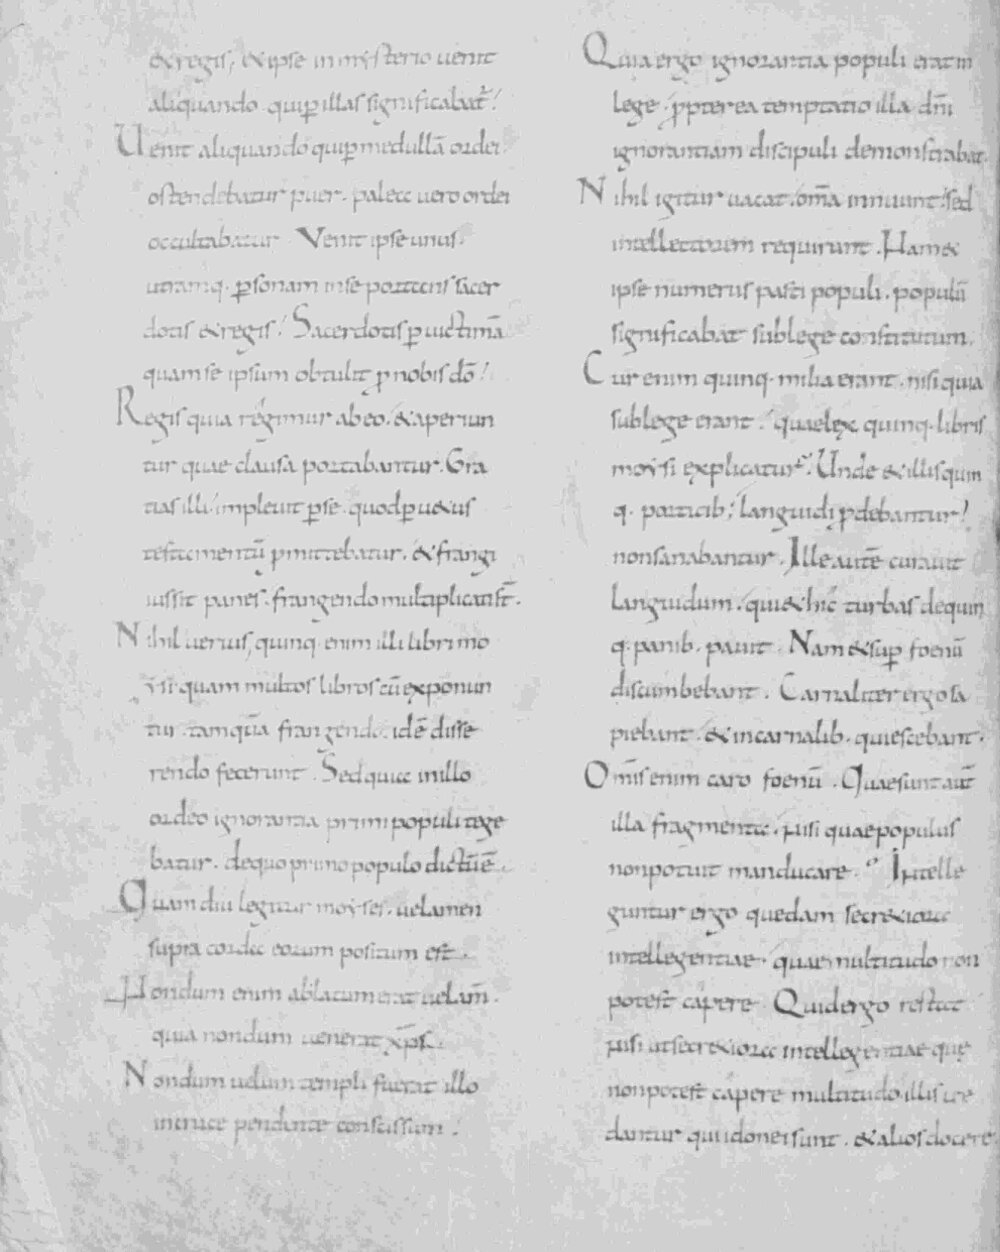 & regis, & ipse in mysterio uenit
aliquando qui p illas significabat͛;
Uenit aliquando qui p medullā ordei
ostendebatur puer · palea uero ordei
occultabatur · Venit ipse unus ·
utramq· psonam in se portans sacer
dotis & regis; Sacerdotis p uictimā
quam se ipsum obtulit p nobis dō;
Regis quia regimur ab eo · & aperiun
tur quae clausa portabantur · Gra
tias illi impleuit p se quod p u&us
testamentū pmittebatur · & frangi
iussit panes · frangendo multiplicati st̄ ·
Nihil uerius, quinq· enim illi libri mo
ysi quam multos libros cū exponun
tur · tamquā frangendo · idē disse
rendo fecerunt · Sed quia in illo
ordeo ignorantia primi populi tege
batur · de quo primo populo dictū ē ·
Quam diu legitur moyses · uelamen
supra corda eorum positum est ·
Nondum enim ablatum erat uelam̄ ·
quia nondum uenerat xp̄s ·
Nondum uelum templi fuerat illo
in cruce pendente conscissum ·
Quia ergo ignorantia populi erat in
lege · ppterea temptatio illa dn̄i
ignorantiam discipuli demonstrabat ·
Nihil igitur uacat · om̄a innuunt · sed
intellectorem requirunt · Nam &
ipse numerus pasti populi · populū
significabat sub lege constitutum ·
Cur enim quinq· milia erant · nisi quia
sub lege erant; quae lex quinq· libris
moysi explicatur; Unde & illis quin
q· porticib; languidi pdebantur;
non sanabantur · Ille autē curauit
languidum · qui & hic turbas de quin
q· panib· pauit · Nam & sup foenū
discumbebant · Carnaliter ergo sa
piebant · & in carnalib· quiescebant ·
Om̄is enim caro foenū · Quae sunt aut̄
illa fragmenta · nisi quae populus
non potuit manducare · Intelle
guntur ergo quedam secr&iora
intellegentiae · quae multitudo non
potest capere · Quid ergo restat
nisi ut secr&iora intellegentiae que
non potest capere multitudo illis cre
dantur qui idonei sunt · & alios docere